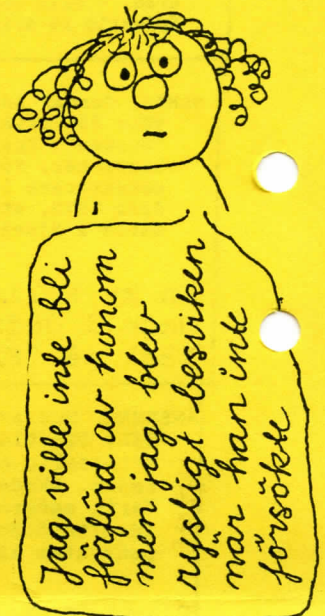 Jag ville inte bli
förförd av honom
men jag blev
rysligt besviken
när han inte
försökte